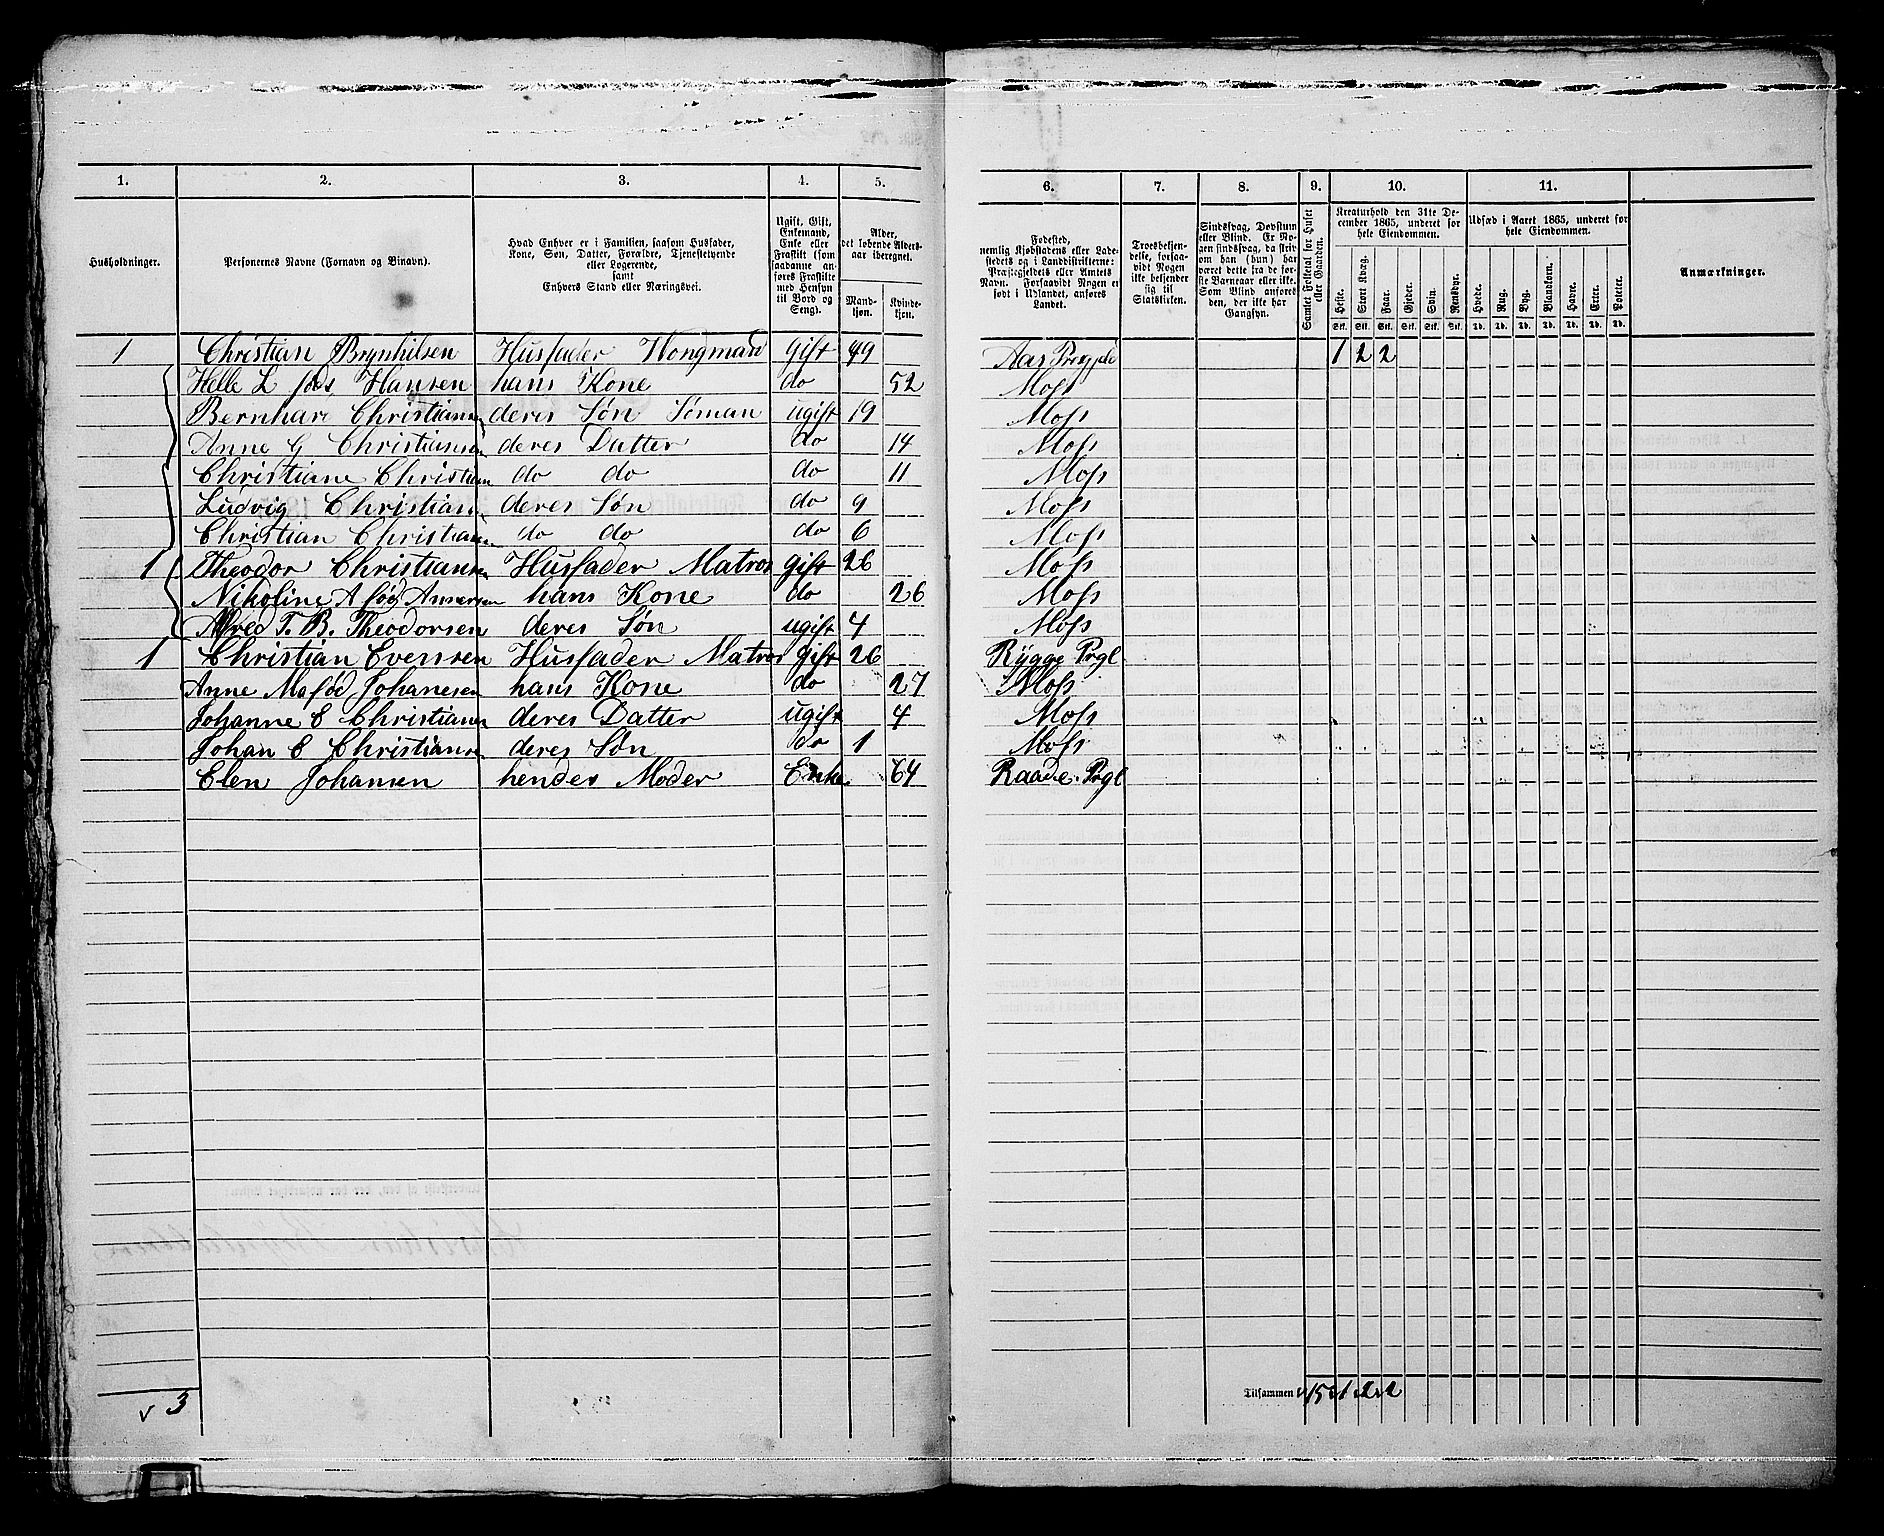 1. 2. 3. 4. 5. 6. 7. 8. 9. 10. 11.
Husholdninger.
Personernes Navne (Fornavn og Binavn).
Hvad Enhver er i Familien, saasom Husfader,
Kone, Søn, Datter, Forældre, Tjenestetyende
eller Logerende,
samt
Enhvers Stand eller Næringsvei.
Ugift, Gift,
Enkemand,
Enke eller
Fraskilt (som
saadanne an-
føres Fraskilte
med Hensyn
til Bord og
Seng).
Alder,
det løbende Alders-
aar iberegnet.
Mand-
kjøn.
Kvinde-
kjøn.
Fødested,
nemlig Kjøbstadens eller Lade-
stedets og i Landdistrikterne:
Præstegjeldets eller Amtets
Navn. Forsaavidt Nogen er
født i Udlandet, anføres
Landet.
Troesbekjen-
delse, forsaa-
vidt Nogen
ikke bekjender
sig til
Statskirken.
Sindssvag, Døvstum
eller Blind. Er No-
gen sindssvag, da skri-
ves om han (hun) har
været dette fra de før-
ste Barneaar eller ikke.
Som Blind anføres
den, der ikke har
Gangsyn.
Samlet Folketal for Huset
eller Gaarden.
Kreaturhold den 31te De-
cember 1865, underet for
hele Eiendommen.
Heste. Stort Kvæg. Faar. Gjeder. Svin. Rensdyr.
Stk. Stk. Stk. Stk. Stk. Stk.
Udsæd i Aaret 1865, underet for
hele Eiendommen.
Hvede. Rug. Byg. Blandkorn. Havre. Erter. Poteter.
Td. Td. Td. Td. Td. Td. Td.
Anmærkninger.
1 Christian Brynhilsen Husfader Vongmand Gift 49 Aas Præstgjeld 1 2 2
Helle L fød Hansen hans Kone do 52 Moss
Bernhard Christiansen deres Søn Søman ugift 19 Moss
Anne G Christiansen deres Datter do 14 Moss
Christiane Christian do do do 11 Moss
Ludvig Christian deres Søn do 9 Moss
Christian Christiansen do do do 6 Moss
1 Theodor Christiansen Husfader Matros gift 26 Moss
Nikoline A fød Andersen hans Kone do 26 Moss
Alfred T. B. Theodorsen deres Søn ugift 4 Moss
1 Christian Evensen Husfader Matros gift 26 Rygge Prgl
Anne M fød Johanesen hans Kone do 27 Moss
Johanne E Christiansen deres Datter ugift 4 Moss
Johan E Christiansen deres Søn do 1 Moss
Elen Johansen hendes Moder Enke 64 Raade Prgl
v 3 Tilsammen 15 1 2 2